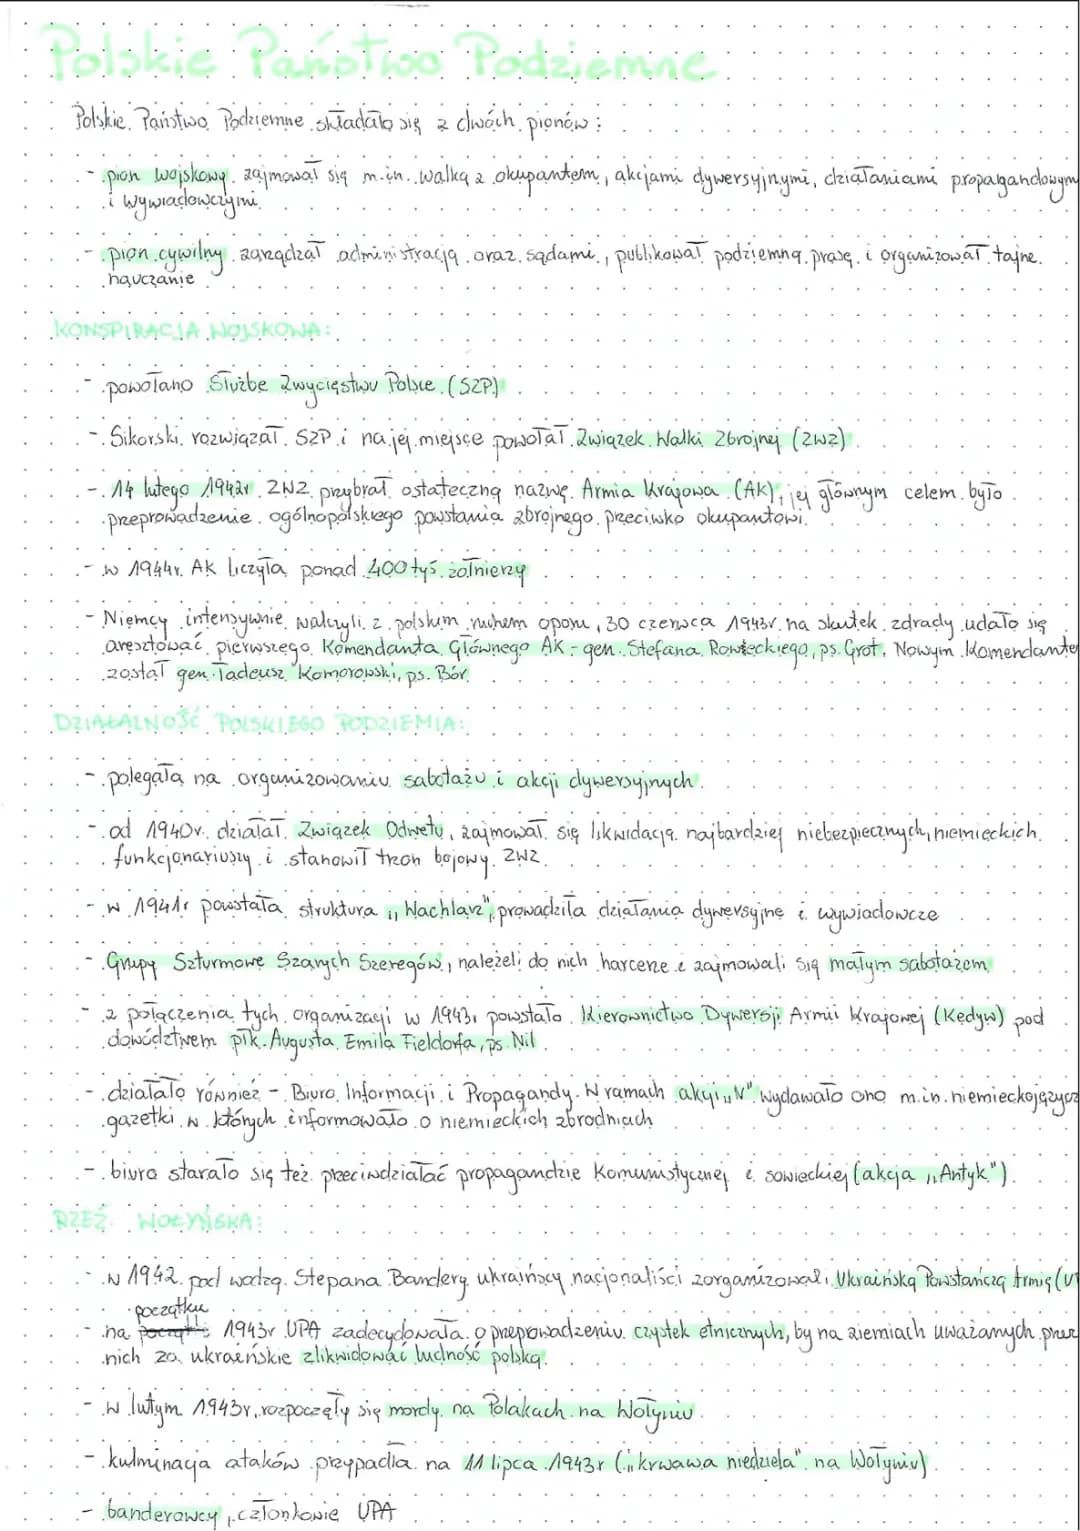 Polskie Państwo Podziemne
Polskie Państwo Podziemne składało się z dwóch pionów:
- pion wojskowy zajmował się m.in. walką z okupantem, akcjami dywersyjnymi, działaniami propagandowym
i wywiadowczymi
- pion cywilny zarządzał administracją oraz sądami, publikował podziemną prasę i organizował tajne
nauczanie
KONSPIRACJA WOJSKOWA:
- powołano Służbę Zwycięstwu Polsce (SZP)
- Sikorski rozwiązał SZP i na jej miejsce powołał Związek Walki Zbrojnej (ZWZ)
- 14 lutego 1942r ZWZ przybrał ostateczną nazwę Armia Krajowa (AK), jej głównym celem było
przeprowadzenie ogólnopolskiego powstania zbrojnego przeciwko okupantowi.
- w 1944r. AK liczyła ponad 400 tyś. żołnierzy
- Niemcy intensywnie walczyli z polskim ruchem oporu, 30 czerwca 1943r. na skutek zdrady udało się
aresztować pierwszego Komendanta Głównego AK - gen. Stefana Roweckiego, ps. Grot. Nowym Komendante
został gen. Tadeusz Komorowski, ps. Bór.
DZIAŁALNOŚĆ POLSKIEGO PODZIEMIA:
- polegała na organizowaniu sabotażu i akcji dywersyjnych.
- od 1940r. działał Związek Odwetu, zajmował się likwidacją najbardziej niebezpiecznych niemieckich
funkcjonariuszy i stanowił trzon bojowy ZWZ
- w 1941r powstała struktura „Wachlarz", prowadziła działania dywersyjne i wywiadowcze
- Grupy Szturmowe Szarych Szeregów, należeli do nich harcerze i zajmowali się małym sabotażem
- z połączenia tych organizacji w 1943r powstało Kierownictwo Dywersji Armii Krajowej (Kedyw) pod
dowództwem płk. Augusta Emila Fieldorfa, ps. Nil
- działało również - Biuro Informacji i Propagandy. W ramach akcji „N" wydawało ono m.in. niemieckojęzycz
gazetki w których informowało o niemieckich zbrodniach
- biuro starało się też przeciwdziałać propagandzie komunistycznej i sowieckiej (akcja „Antyk").
RZEŹ WOŁYŃSKA:
- w 1942 pod wodzą Stepana Bandery ukraińscy nacjonaliści zorganizowali Ukraińską Powstańczą Armię (U
początku
- na 1943r UPA zadecydowała o przeprowadzeniu czystek etnicznych, by na ziemiach uważanych przez
nich za ukraińskie zlikwidować ludność polską.
- w lutym 1943r. rozpoczęły się mordy na Polakach na Wołyniu.
- kulminacja ataków przypadła na 11 lipca 1943r („krwawa niedziela" na Wołyniu)
- banderowcy, członkowie UPA